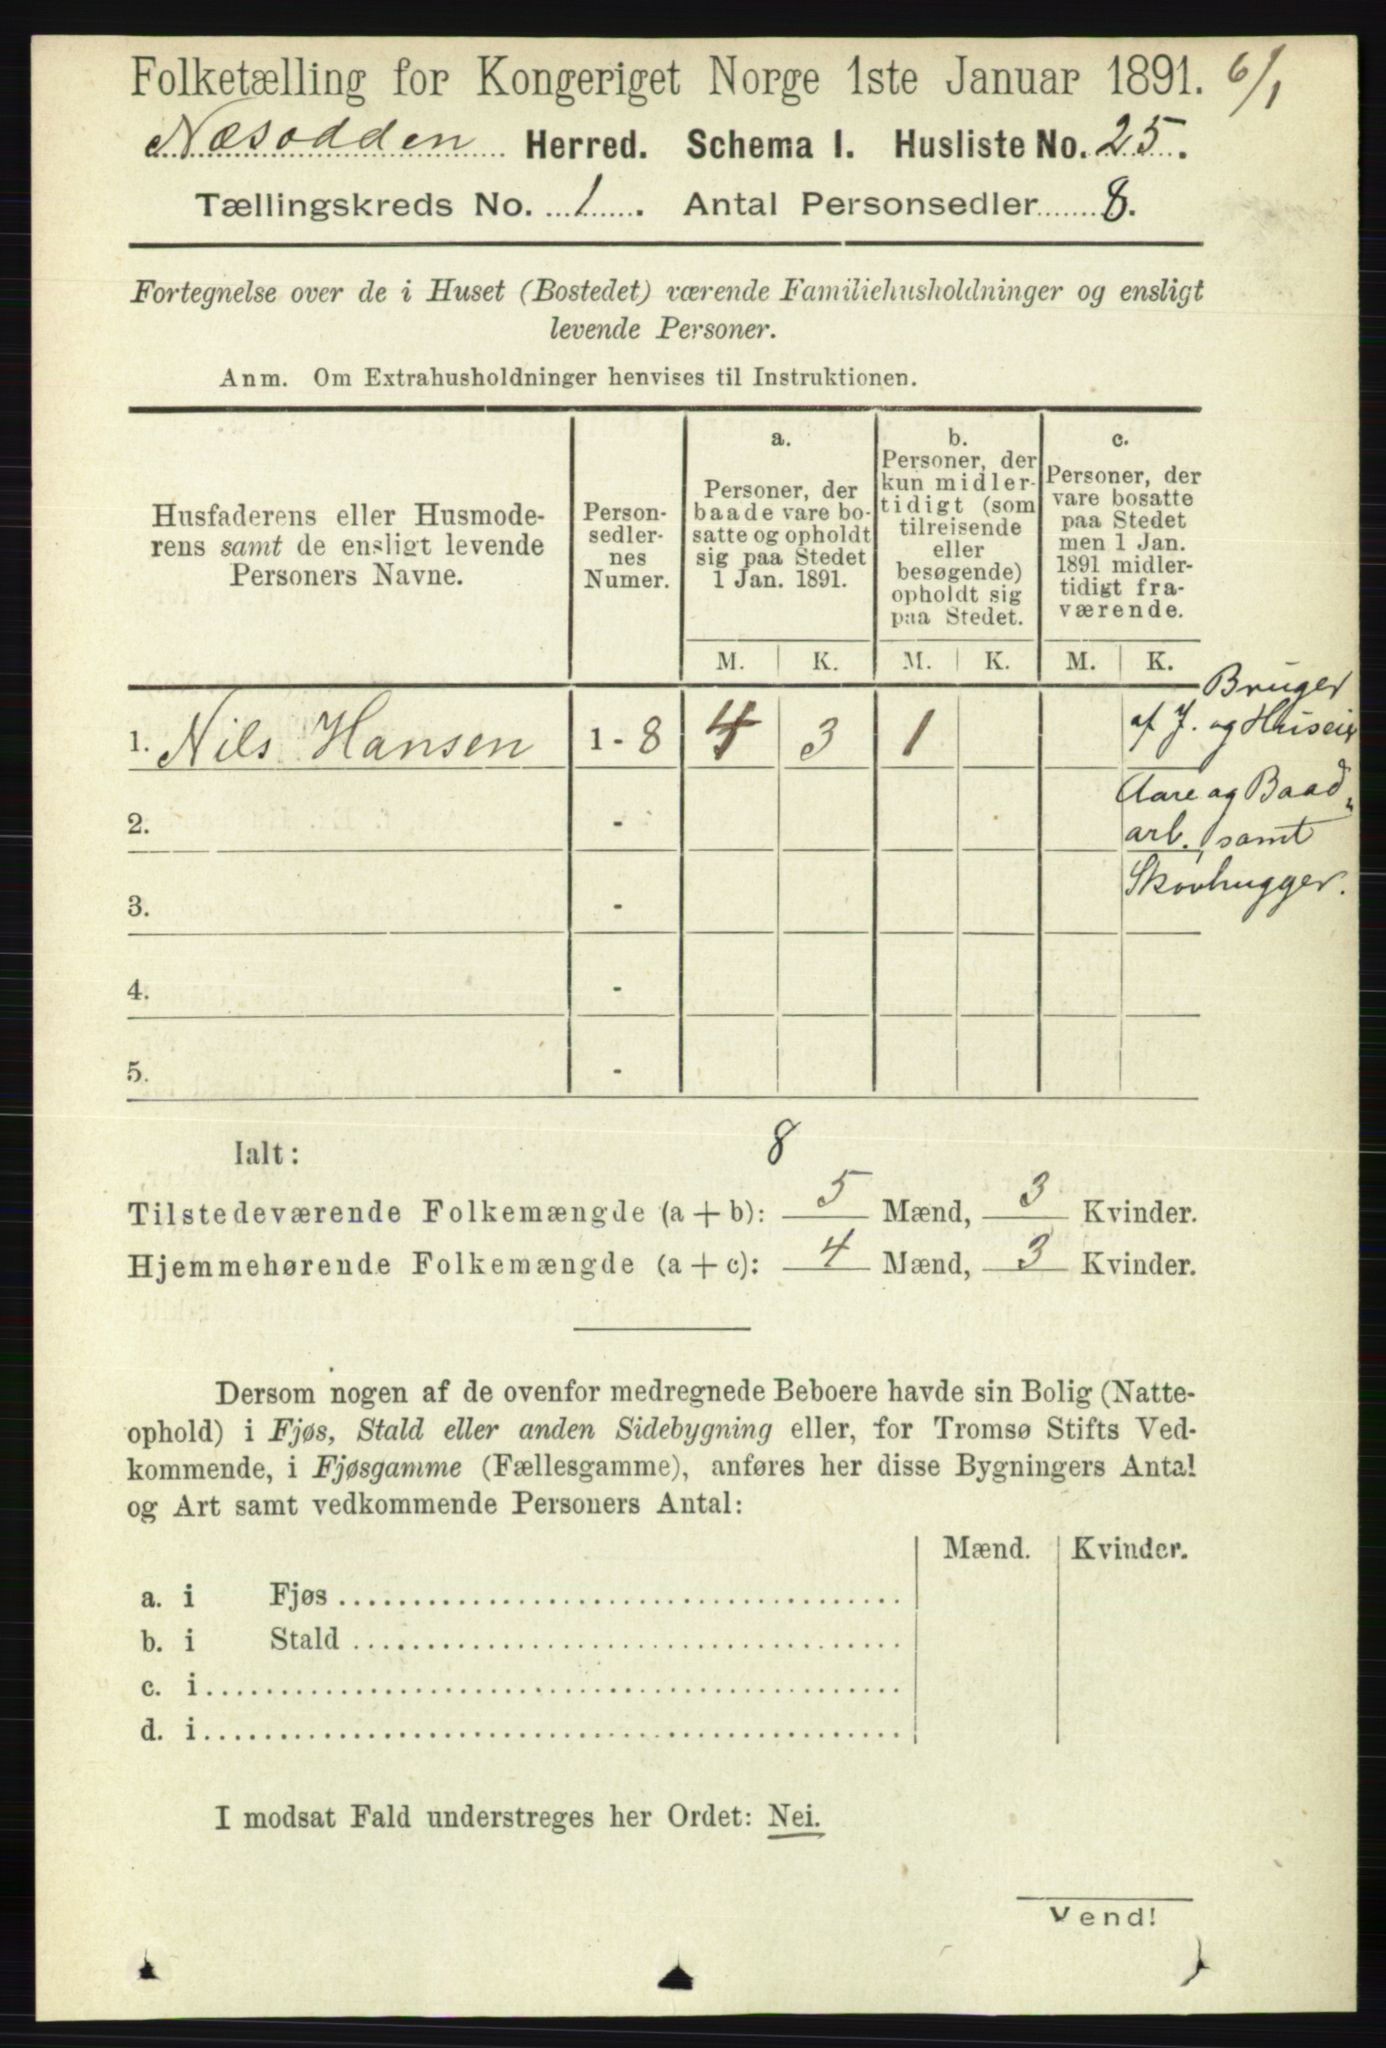 Folketælling for Kongeriget Norge 1ste Januar 1891. 6/1
Næsodden Herred. Schema I. Husliste No. 25.
Tællingskreds No. 1. Antal Personsedler 8.
Fortegnelse over de i Huset (Bostedet) værende Familiehusholdninger og ensligt
levende Personer.
Anm. Om Extrahusholdninger henvises til Instruktionen.
Husfaderens eller Husmode-
rens samt de ensligt levende
Personers Navne.
Person-
sedler-
nes
Numer.
a.
Personer, der
baade vare bo-
satte og opholdt
sig paa Stedet
1 Jan. 1891.
b.
Personer, der
kun midler-
tidigt (som
tilreisende
eller
besøgende)
opholdt sig
paa Stedet.
c.
Personer, der
vare bosatte
paa Stedet
men 1 Jan.
1891 midler-
tidigt fra-
værende.
M. K. M. K. M. K.
1. Nils Hansen 1 - 8 4 3 1
Bruger
af J. og Huseier
Aare og Baad
arb., samt
Skovhugger.
2. -
3. -
4. -
5. -
Ialt: 8
Tilstedeværende Folkemængde (a + b): 5 Mænd, 3 Kvinder.
Hjemmehørende Folkemængde (a + c): 4 Mænd, 3 Kvinder.
Dersom nogen af de ovenfor medregnede Beboere havde sin Bolig (Natte-
ophold) i Fjøs, Stald eller anden Sidebygning eller, for Tromsø Stifts Ved-
kommende, i Fjøsgamme (Fællesgamme), anføres her disse Bygningers Antal
og Art samt vedkommende Personers Antal:
Mænd. Kvinder.
a. i Fjøs
b. i Stald
c. i
d. i
I modsat Fald understreges her Ordet: Nei.
Vend!